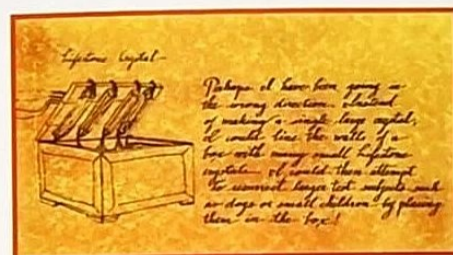 Lifestone Crystal
Perhaps I have been going in
the wrong direction. Instead
of making a single large crystal,
I could line the walls of a
box with many small lifestone
crystals. I could then attempt
to resurrect larger test subjects such
as dogs or small children by placing
them in the box!